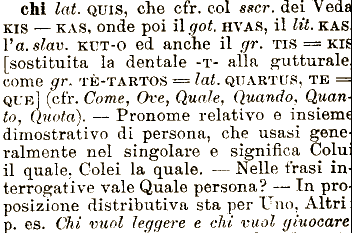 chi lat. QUIS, che cfr. col sscr. dei Veda
KIS — KAS, onde poi il got. HVAS, il lit. KAS,
l'a. slav. KUT-O ed anche il gr. TIS = KIS
[sostituita la dentale -T- alla gutturale,
come gr. TÈ-TARTOS = lat. QUARTUS, TE =
QUE] (cfr. Come, Ove, Quale, Quando, Quan-
to, Quota). — Pronome relativo e insieme
dimostrativo di persona, che usasi gene-
ralmente nel singolare e significa Colui
il quale, Colei la quale. — Nelle frasi in-
terrogative vale Quale persona? — In pro-
posizione distributiva sta per Uno, Altri:
p. es. Chi vuol leggere e chi vuol giuocare.